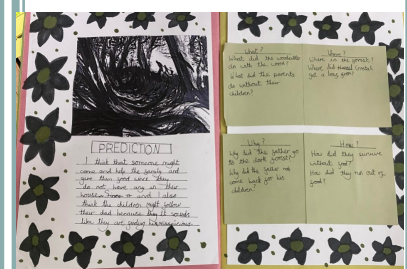 PREDICTION
I think that someone might
come and help the family and
give them good were they
do not have any in their
house and I also
think the children might follow
their dad because they it sounds
like they are going
What?
What did the woodcutter
do with the wood?
What did the parents
do without their
children?
Where?
Where is the forest?
Where did Hansel Gretel
get a bag from?
Why?
Why did the father go
to the dark forest?
Why did the father not
come back for his
children?
How?
How did they survive
without food?
How did they run out of
food?